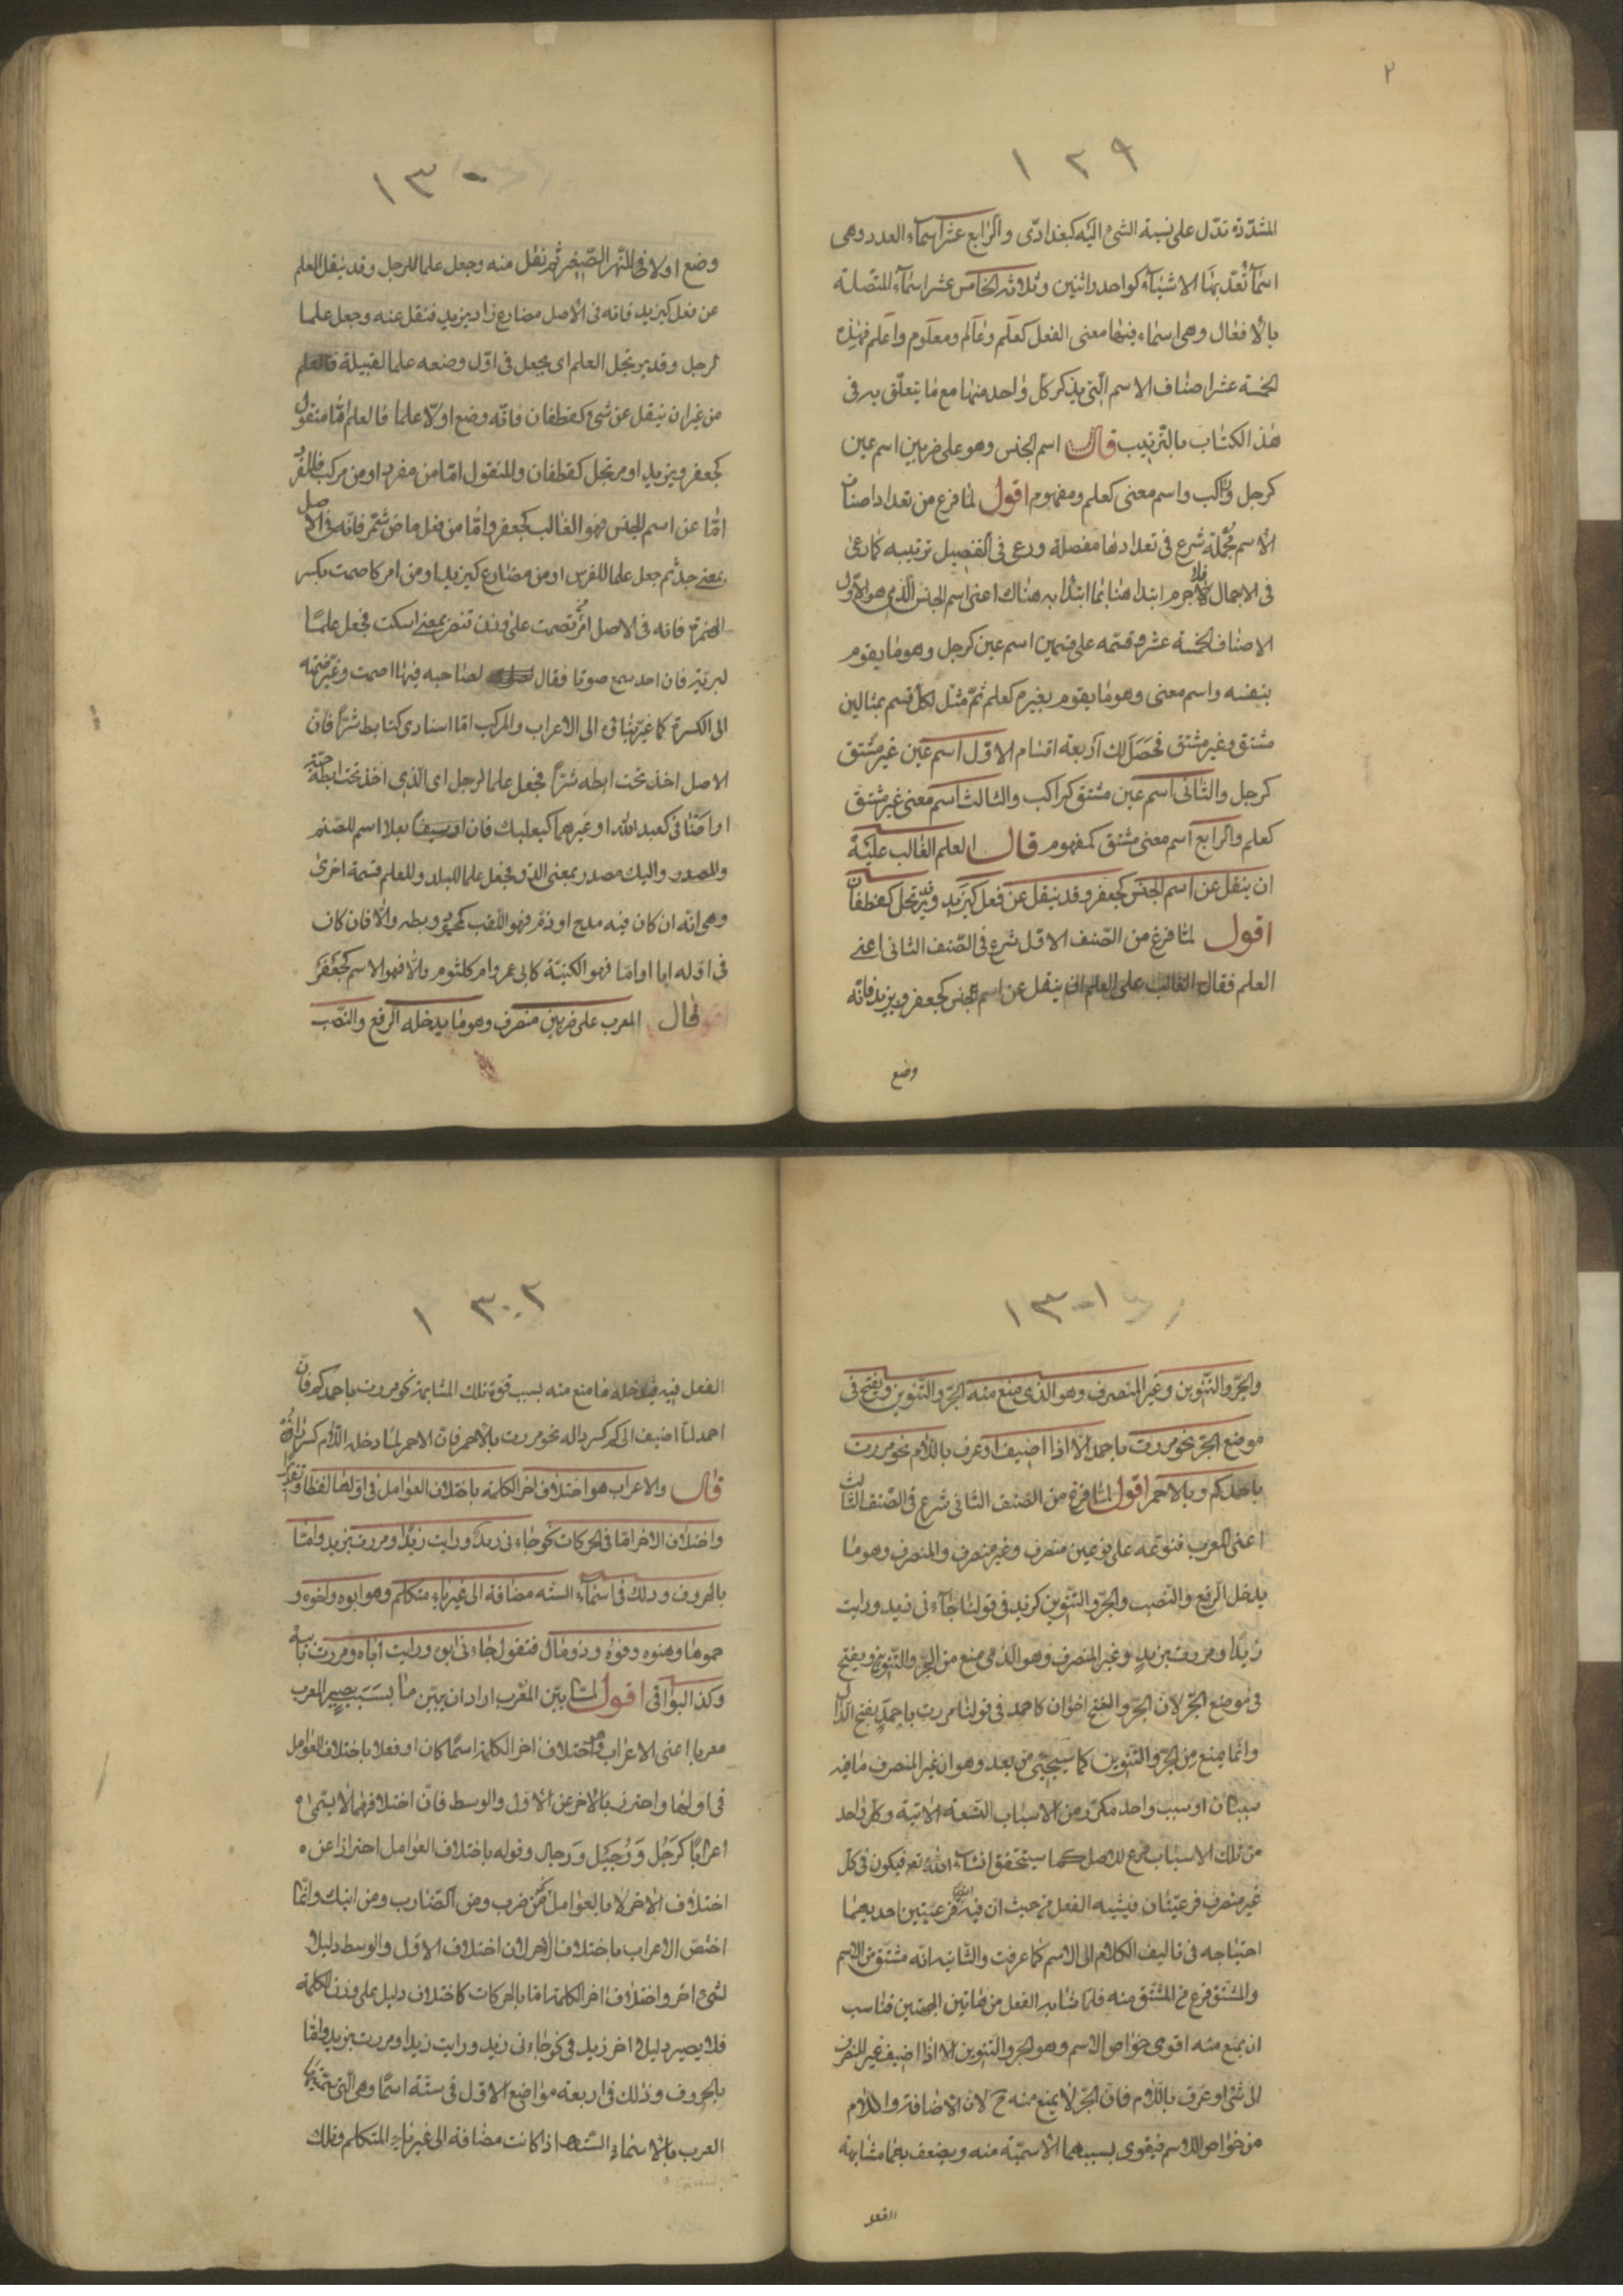 ٢
١٢٩
المشدّدة تدّل على نسبة الشئ اليه كبغدادّى والرابع عشر اسماء العدد وهى
اسماء تُعدّ بها الاشياء كواحد واثنين وثلاثه الخامس عشر اسماء المتصلة
بالافعال وهى اسماء فيها معنى الفعل كعلم وعالم ومعلوم واعلم فهذه
الخمسة عشر اصناف الاسم الّتى يذكر كل واحد منها مع ما يتعلّق به فى
هذا الكتاب بالترتيب قال اسم الجنس وهو على ضربين اسم عين
كرجل وراكب واسم معنى كعلم ومفهوم اقول لمّا فرغ من تعداد اصناف
الاسم مجُملة شرع فى تعدادها مفصلة ورعى فى التفصيل ترتيبه كما رعى
فى الاجمال فلا جرم ابتدا هنا بما ابتدا به هناك اعنى اسم الجنس الّذى هو الاوّل
الاصناف الخمسة عشر وقسّمه على قسمين اسم عين كرجل وهو ما يقوم
بنفسه واسم معنى وهو ما يقوم بغيره كعلم ثمّ مثّل لكل قسم بمثالين
مشتق وغير مشتق فحصل لك اربعة اقسام الاول اسم عين غير مشتق
كرجل والثانى اسم عين مشتق كراكب والثالث اسم معنى غير مشتق
كعلم والرابع اسم معنى مشتق كمفهوم قال العلم الغالب عليه
ان ينقل عن اسم الجنس كجعفر وقد ينقل عن فعل كيزيد وقد يرتجل كغطفان
اقول لمّا فرغ من الصنف الاول شرع فى الصّنف الثانى اعنى
العلم فقال الغالب على العلم ان ينقل عن اسم الجنس كجعفر ويزيد فانّه
وضع
١٣٠
وضع اولا فى النهر الصّغير ثم نقل منه وجعل علما للرجل وقد ينقل العلم
عن فعل كيزيد فانه فى الاصل مضارع زاد يزيد فنقل عنه وجعل علما
لرجل وقد يرتجل العلم اى يجعل فى اوّل وضعه علما لقبيلة فالعلم
من غير ان ينقل عن شئ كغطفان فانّه وضع اوّلا علما فالعلم امّا منقول
كجعفر ويزيد او مرتجل كغطفان والمنقول امّا من مفرد او من مركب فالمفرد
امّا عن اسم الجنس فهو الغالب كجعفر وامّا من فعل ماض كشمّر فانّه فى الاصل
بمعنى جدّ ثم جعل علما للفرس او من مضارع كيزيد او من امر كاصمت بكسر
الهمزة فانه فى الاصل امر من تصمت على وزن تنصر بمعنى اسكت فجعل علمًا
لبريّة فان احد سمع صوتا فقال لصاحبه فيها اصمت وغيّر ضمّته
الى الكسرة كما غيّر بناؤه الى الاعراب والمركب اما اسنادى كتابط شرّا فان
الاصل اخذ تحت ابطه شرّا فجعل علما لرجل اى الّذى اخذ تحت ابطه حيّة
او اضافى كعبد الله او غيرهما كبعلبك فان بعلا اسم للصّنم
والبك مصدر بمعنى الدق فجعل علما للبلد وللعلم قسمة اخرى
وهى انّه ان كان فيه مدح او ذم فهو اللّقب وبطه والّا فان كان
فى اوله ابا او امّا فهو الكنيّة كابى عمرو وام كلثوم والّا فهو الاسم كجعفر
قال المعرب على ضربين منصرف وهو ما يدخله الرفع والنّصب
١٣٠١
والجرّ والتّنوين وغير المنصرف وهو الذى منع منه الجرّ والتّنوين ويفتح فى
موضع الجرّ نحو مررت باحمد الّا اذا اضيف او عرف باللّام نحو مررت
باحمدكم وبالاحمر اقول لمّا فرغ من الصّنف الثانى شرع فى الصّنف الثالث
اعنى المعرب فنوّعه على نوعين منصرف وغير منصرف والمنصرف وهو ما
يدخل الرفع والنّصب والجرّ والتّنوين كزيد فى قولنا جاءنى زيد ورايت
زيدًا ومررت بزيد وغير المنصرف وهو الذى منع من الجرّ والتّنوين ويفتح
فى موضع الجرّ لانّ الجرّ والفتح اخوان كاحمد فى قولنا مررت باحمد بفتح الدّال
وانّما يمنع من الجرّ والتّنوين كما سيجئ من بعد وهو ان غير المنصرف ما فيه
سببان او سبب واحد مكرّر من الاسباب التسعة الاتية وكل واحد
من تلك الاسباب فرع للاصل كما سيتحقق انشاء الله تع فيكون فى كلّ
غير منصرف فرعيّتان فيشبه الفعل من حيث ان فيه ايضا فرعيّتين احديهما
احتياجه فى تاليف الكلام الى الاسم كما عرفت والثانيه انّه مشتّق من الاسم
والمشتّق فرع من المشتّق منه فلمّا شابه الفعل من هاتين الجهتين فناسب
ان يمنع منه اقوى خواص الاسم وهو الجرّ والتّنوين الّا اذا اضيف غير المنصرف
الى شئ او عرّف باللّام فان الجرّ لا يمنع منه ح لانّ الاضافة واللام
من خواص الاسم فيقوى بسببهما الاسميّة منه ويضعف بهما مشابهة
الفعل
١٣٠٢
الفعل فيه فيدخله ما منع منه بسبب قوة تلك المشابهة نحو مررت باحمدكم فانّ
احمد لمّا اضيف الى كم كسر داله نحو مررت بالاحمر فان الاحمر لما دخله اللّام كسر راؤه
قال والاعراب هو اختلاف اخر الكلمة باختلاف العوامل فى اولها لفظا وتقديرًا
واختلاف الاخر امّا فى الحركات نحو جاءنى زيد ورايت زيدًا ومررت بزيد وامّا
بالحروف وذلك فى اسماء السته مضافة الى غير ياء متكلم وهو ابوه واخوه و
حموها وهنوه وفوه وذو مال فتقول جاءنى ابوه ورايت اباه ومررت بابيه
وكذا البواقى اقول لمّا بيّن المعرب اراد ان يبيّن ما بسببه يصير المعرب
معربا اعنى الاعراب وهو اختلاف اخر الكلمة اسمًا كان او فعلا باختلاف العوامل
فى اولها واحترز بالاخر عن الاول والوسط فانّ اختلافهما لا يسمّى
اعرابًا كرَجُل وَرُجَيْل وَرجال وقوله باختلاف العوامل احترازا عن
اختلاف الاخر لا بالعوامل كمن ضرب ومن الضّارب ومن ابنك وانّما
اختصّ الاعراب باختلاف الاخر لانّ اختلاف الاول والوسط دليل
لشئ اخر واختلاف اخر الكلمة امّا بالحركات كاختلاف دليل على وزن الكلمة
فلا يصير دليل اخر زيد فى نحو جاءنى زيد ورايت زيدا ومررت بزيد وامّا
بالحروف وذلك فى اربعة مواضع الاول فى ستّة اسما وهى الّتى سمّتها
العرب بالاسماء السّته اذا كانت مضافة الى غير ياء المتكلم وتلك